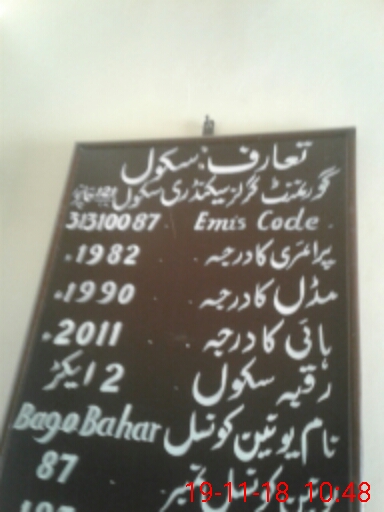 تعارف سکول
گورنمنٹ گرلز سیکنڈری سکول 121
Emis Code 31310087
پرائمری کا درجہ 1982ء
مڈل کا درجہ 1990ء
ہائی کا درجہ 2011ء
رقبہ سکول 12 یکڑ
نام یونین کونسل Bago Bahar
یونین کونسل نمبر 87
19-11-18 10:48